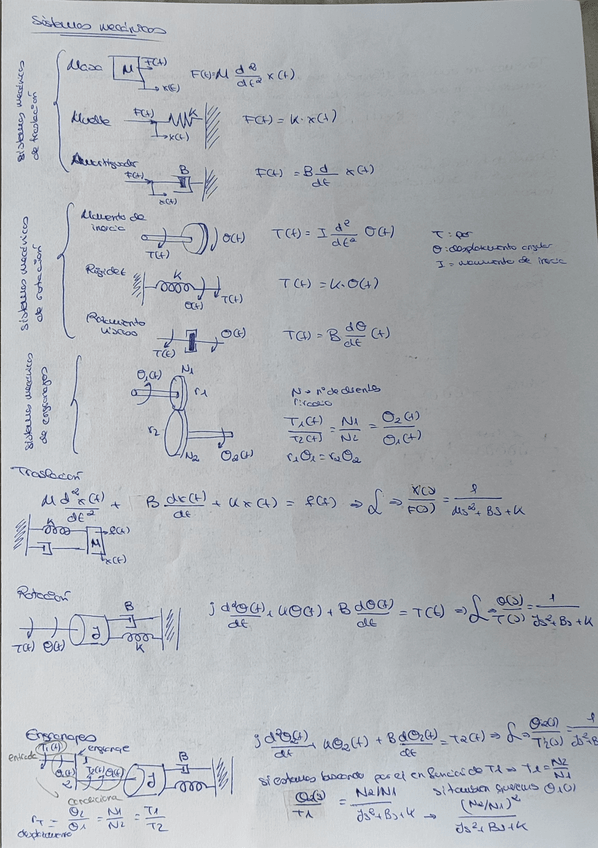 Sistemas mecánicos
Sistemas mecánicos de traslación
Masa M F(t) x(t) F(t)=M d²/dt² x(t)
Muelle F(t) K x(t) F(t) = K · x(t)
Amortiguador F(t) B x(t) F(t) = B d/dt x(t)
Sistemas mecánicos de rotación
Momento de inercia T(t) Θ(t) T(t) = I d²/dt² Θ(t)
T: par
Θ: desplazamiento angular
I = momento de inercia
Rigidez K Θ(t) T(t) T(t) = K·Θ(t)
Rozamiento viscoso T(t) B Θ(t) T(t) = B dΘ/dt (t)
Sistemas mecánicos de engranajes
Θ1(t) N1 r1 r2 N2 Θ2(t)
N = nº de dientes
r: radio
T1(t)/T2(t) = N1/N2 = Θ2(t)/Θ1(t)
r1Θ1 = r2Θ2
Traslación
M d²x(t)/dt² + B dx(t)/dt + Kx(t) = f(t) ⇒ ℒ ⇒ X(s)/F(s) = 1/Ms²+Bs+K
K M f(t) x(t)
Rotación
T(t) Θ(t) J B K
J d²Θ(t)/dt + KΘ(t) + B dΘ(t)/dt = T(t) ⇒ ℒ Θ(s)/T(s) = 1/Js²+Bs+K
Engranajes
entrada T1(t) Θ1(t) engranaje 1 2 T2(t) Θ2(t) J B K
condiciona
J d²Θ2(t)/dt + KΘ2(t) + B dΘ2(t)/dt = T2(t) ⇒ ℒ ⇒ Θ2(s)/T2(s) = 1/Js²+B
si estamos buscando por el en función de T1 ⇒ T1 = N2/N1
Θ2(s)/T1 = N2/N1/Js²+Bs+K → si también queremos Θ1(t) (N2/N1)²/Js²+Bs+K
rT = Θ2/Θ1 = N1/N2 = T1/T2
desplazamiento